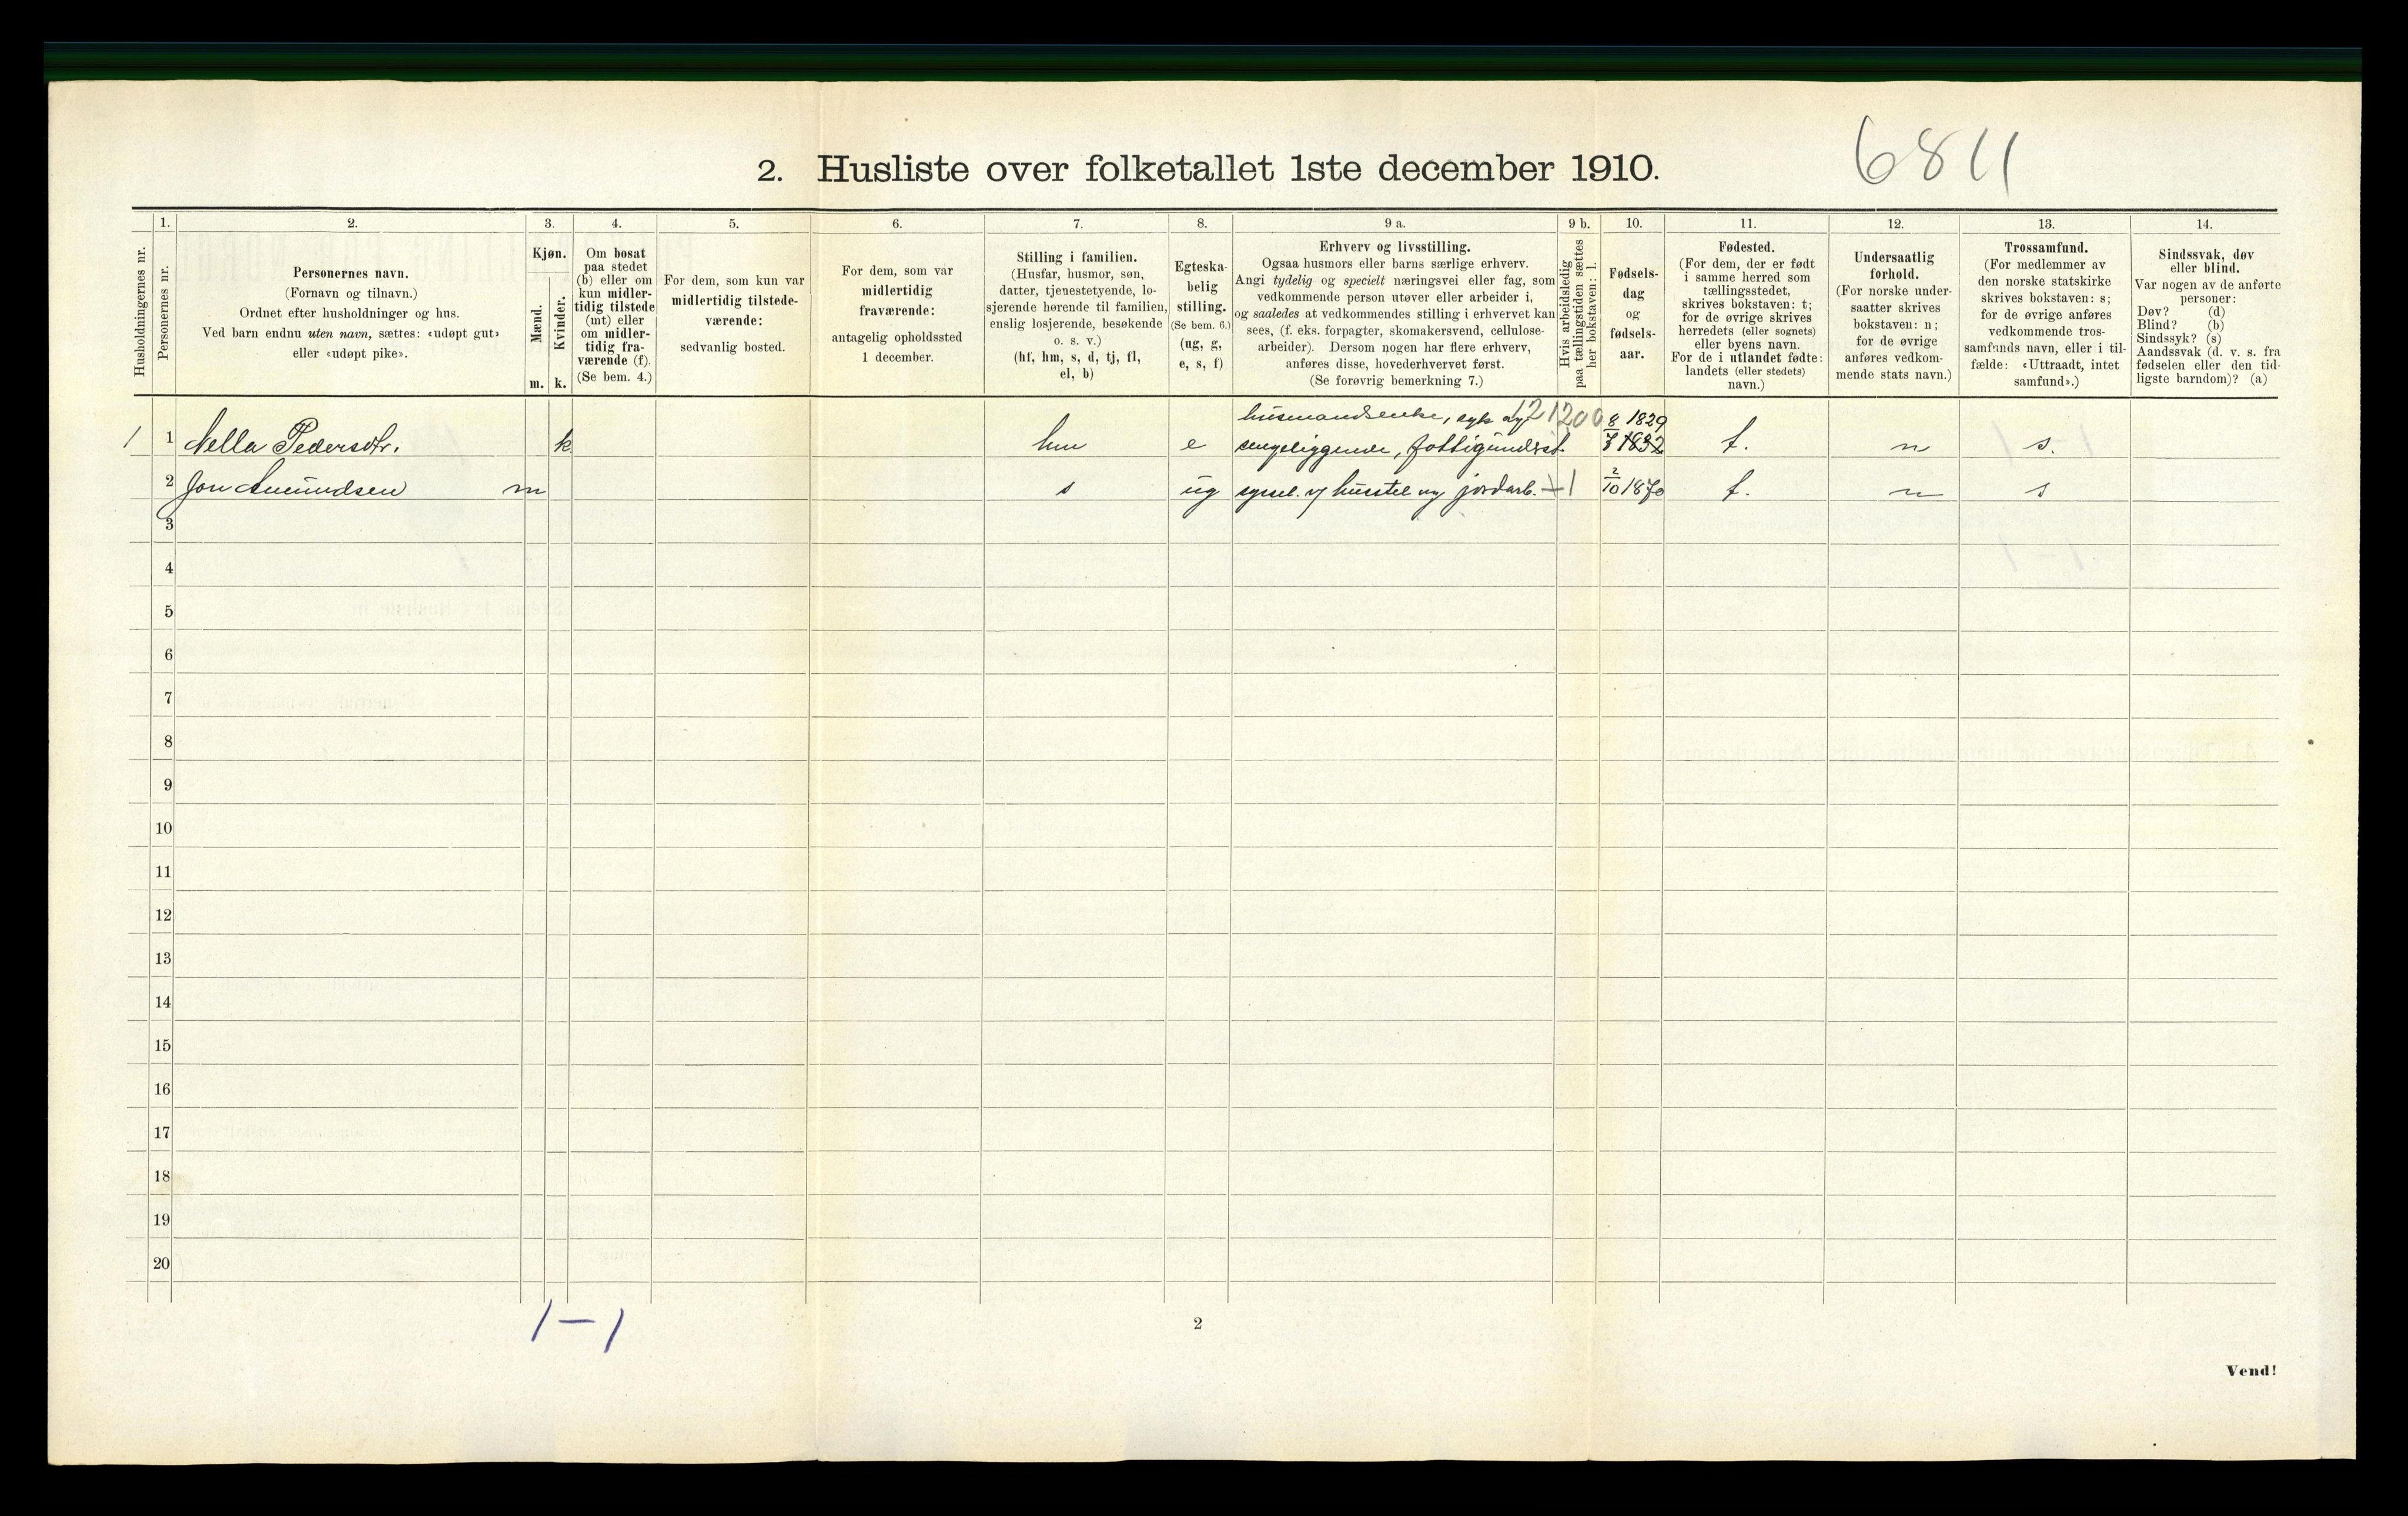 6811
2. Husliste over folketallet 1ste december 1910.
Husholdningernes nr.
1.
Personernes nr.
2.
Personernes navn.
(Fornavn og tilnavn.)
Ordnet efter husholdninger og hus.
Ved barn endnu uten navn, sættes: «udøpt gut»
eller «udøpt pike».
3.
Kjøn.
Mænd.
Kvinder.
m. k.
4.
Om bosat
paa stedet
(b) eller om
kun midler-
tidig tilstede
(mt) eller
om midler-
tidig fra-
værende (f).
(Se bem. 4.)
5.
For dem, som kun var
midlertidig tilstede-
værende:
sedvanlig bosted.
6.
For dem, som var
midlertidig
fraværende:
antagelig opholdssted
1 december.
7.
Stilling i familien.
(Husfar, husmor, søn,
datter, tjenestetyende, lo-
sjerende hørende til familien,
enslig losjerende, besøkende
o. s. v.)
(hf, hm, s, d, tj, fl,
el, b)
8.
Egteska-
belig
stilling.
(Se bem. 6.)
(ug, g,
e, s, f)
9 a.
Erhverv og livsstilling.
Ogsaa husmors eller barns særlige erhverv.
Angi tydelig og specielt næringsvei eller fag, som
vedkommende person utøver eller arbeider i,
og saaledes at vedkommendes stilling i erhvervet kan
sees, (f. eks. forpagter, skomakersvend, cellulose-
arbeider). Dersom nogen har flere erhverv,
anføres disse, hovederhvervet først.
(Se forøvrig bemerkning 7.)
9 b.
Hvis arbeidsledig
paa tællingstiden sættes
her bokstaven: l.
10.
Fødsels-
dag
og
fødsels-
aar.
11.
Fødested.
(For dem, der er født
i samme herred som
tællingsstedet,
skrives bokstaven: t;
for de øvrige skrives
herredets (eller sognets)
eller byens navn.
For de i utlandet fødte:
landets (eller stedets)
navn.)
12.
Undersaatlig
forhold.
(For norske under-
saatter skrives
bokstaven: n;
for de øvrige
anføres vedkom-
mende stats navn.)
13.
Trossamfund.
(For medlemmer av
den norske statskirke
skrives bokstaven: s;
for de øvrige anføres
vedkommende tros-
samfunds navn, eller i til-
fælde: «Uttraadt, intet
samfund».)
14.
Sindssvak, døv
eller blind.
Var nogen av de anførte
personer:
Døv? (d)
Blind? (b)
Sindssyk? (s)
Aandssvak (d. v. s. fra
fødselen eller den tid-
ligste barndom)? (a)
husmandsenke, syk og 121200 8 1829
1 1 Nella Pedersdtr. k hm e sengeliggende, fattigunderst. 7 1832 t. n s.
2 Jon Amundsen m s ug syssel. v/ husstel og jordarb. 1 2/10 1870 t. n s
3
4
5
6
7
8
9
10
11
12
13
14
15
16
17
18
19
20
1-1
2
Vend!